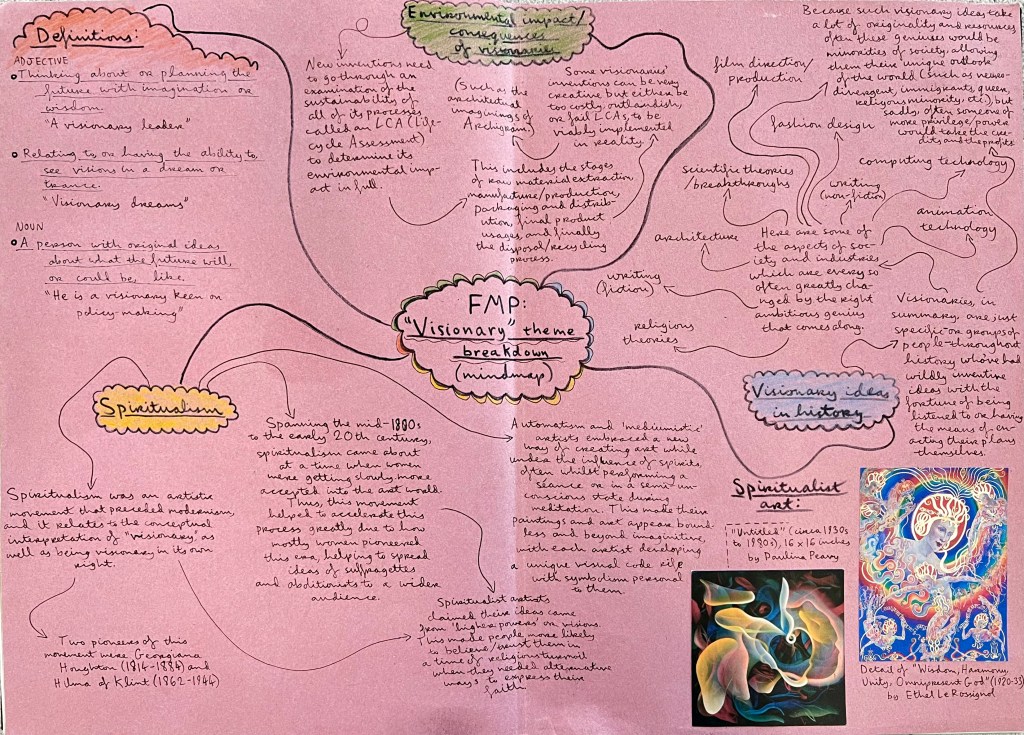 Definitions:
ADJECTIVE
Thinking about or planning the
future with imagination or
wisdom.
"A visionary leader"
Relating to or having the ability to
see visions in a dream or
trance.
"Visionary dreams"
NOUN
A person with original ideas
about what the future will,
or could be, like.
"He is a visionary keen on
policy-making"
Environmental impact/
consequences
of visionaries
New inventions need
to go through an
examination of the
sustainability of
all of its processes
called an LCA (Life-
cycle Assessment)
to determine its
environmental imp-
act in full.
This includes the stages
of raw material extraction,
manufacture/production,
packaging and distrib-
ution, final product
usages, and finally
the disposal/recycling
process.
(Such as the
architectural
imaginings of
Archigram.)
Some visionaries'
inventions can be very
creative but either be
too costly, outlandish,
or fail LCAs, to be
viably implemented
in reality.
Because such visionary ideas take
a lot of originality and resources
often these geniuses would be
minorities of society, allowing
them their unique outlook
of the world (such as neuro-
divergent, immigrants, queer,
religious minority, etc), but
sadly, often someone of
more privilege/power
would take the cre-
dits and the profits.
film direction/
production
fashion design
scientific theories
/breakthroughs
writing
(non-fiction)
computing technology
animation
technology
architecture
writing
(fiction)
religious
theories
Here are some of
the aspects of soc-
iety and industries
which are every so
often greatly cha-
nged by the right
ambitious genius
that comes along.
Visionaries, in
summary, are just
specific-or groups of
people-throughout
history who've had
wildly inventive
ideas with the
fortune of being
listened to or having
the means of en-
acting their plans
themselves.
FMP:
"Visionary" theme
breakdown
(mindmap)
Visionary ideas
in history
Spiritualism
Spiritualism was an artistic
movement that preceded modernism,
and it relates to the conceptual
interpretation of "visionary", as
well as being visionary in its own
right.
Two pioneers of this
movement were Georgiana
Houghton (1814-1884) and
Hilma af Klint (1862-1944)
Spanning the mid-1800s
to the early 20th century,
spiritualism came about
at a time when women
were getting slowly more
accepted into the art world.
Thus, this movement
helped to accelerate this
process greatly due to how
mostly women pioneered
this era, helping to spread
ideas of suffragettes
and abolitionists to a wider
audience.
Spiritualist artists
claimed their ideas came
from 'higher powers' or visions.
This made people more likely
to believe/trust them in
a time of religious turmoil
when they needed alternative
ways to express their
faith.
Automatism and 'mediumistic'
artists embraced a new
way of creating art while
under the influence of spirits,
often whilst performing a
séance or in a semi-un-
conscious state during
meditation. This made their
paintings and art appear bound-
less and beyond imaginitive,
with each artist developing
a unique visual code rife
with symbolism personal
to them.
Spiritualist
art:
"Untitled" (circa 1930s
to 1980s), 16 x 16 inches
by Paulina Peavy
Detail of "Wisdom, Harmony,
Unity, Omnipresent God" (1920-33)
by Ethel Le Rossignol